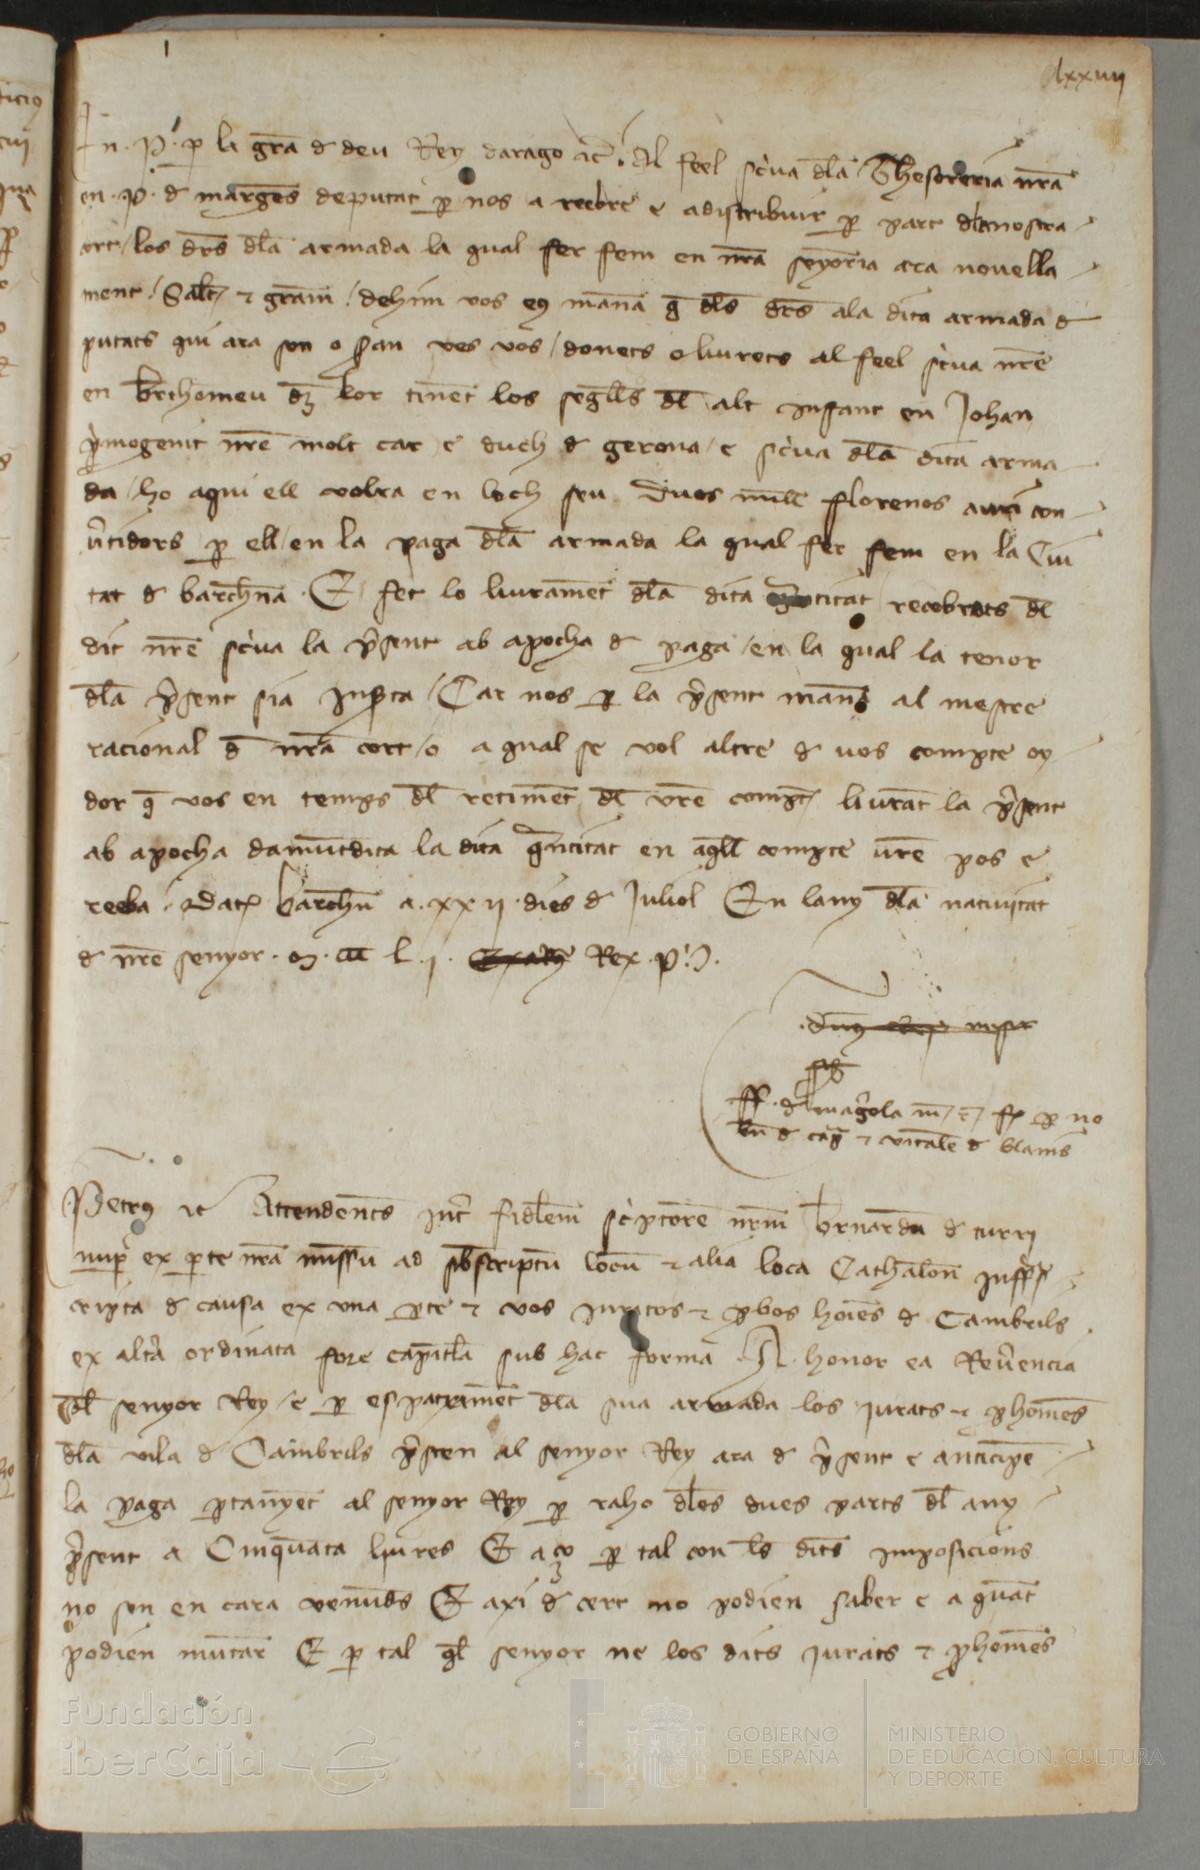 lxxiiij
En .P. p la gra d deu Rey darago &c. Al feel scriva dla Thesoreria nra
en .P. d marges deputat p nos a reebre e a distribuir p part dla nostra
cort / los drs dla armada la qual fer fem en nra senyoria ara novella
ment / Salt & gram / dehim vos eus mana q dls drs ala dita armada d
putats qui ara son o seran ves vos / donets o liurets al feel scriva nre
en brthomeu dez lor tinent los segells dl alt infant en Johan
primogenit nre molt car e duch d gerona / e scriva dla dita arma
da / ho aqui ell volra en loch seu Duos mill florenos auri con
vtidors p ell / en la paga dla armada la qual fer fem en la Ciu
tat d barchna . E fet lo liurament dla dita quatitat recobrats dl
dit nre scriva la psent ab apocha d paga / en la qual la tenor
dla psent sia inserta / Car nos p la psent manam al mestre
racional d nra cort / o a qual se vol altre d vos compte oy
dor q vos en temps dl retiment dl vre compte liurant la psent
ab apocha damuntdita la dita quantitat en aqll compte vre pos e
reeba . Dat barchn a .xxij. dies d Juliol En lany dla nativitat
d nre senyor . M. ccc L .j. Rex .P.
.dns Rex
sig
. d magrola
& vitale d blanis
Petrus &c Attendents int fidlem scriptore nrm brnardu d turri
nup ex pte nra missum ad sbscriptu locu & alia loca Cathalon infras
cripta d causa ex una pte & vos iuratos & pbos hoies d Cambrils
ex altra ordinata fore capitla sub hac forma . A honor ea Revencia
dl senyor Rey / e p espatxament dla sua armada los jurats & phomens
dla vila d Cambrils psten al senyor Rey ara d psent e anticipen
la paga ptanyent al senyor Rey p raho dles dues parts dl any
psent a Cinquanta liures E aço p tal con les dites imposicions
no son en cara venuds E axi d cert no podien saber e a quant
podien muntar E p tal ql senyor ne los dits jurats & phomens
Fundación
iberCaja
GOBIERNO
DE ESPAÑA
MINISTERIO
DE EDUCACIÓN, CULTURA
Y DEPORTE